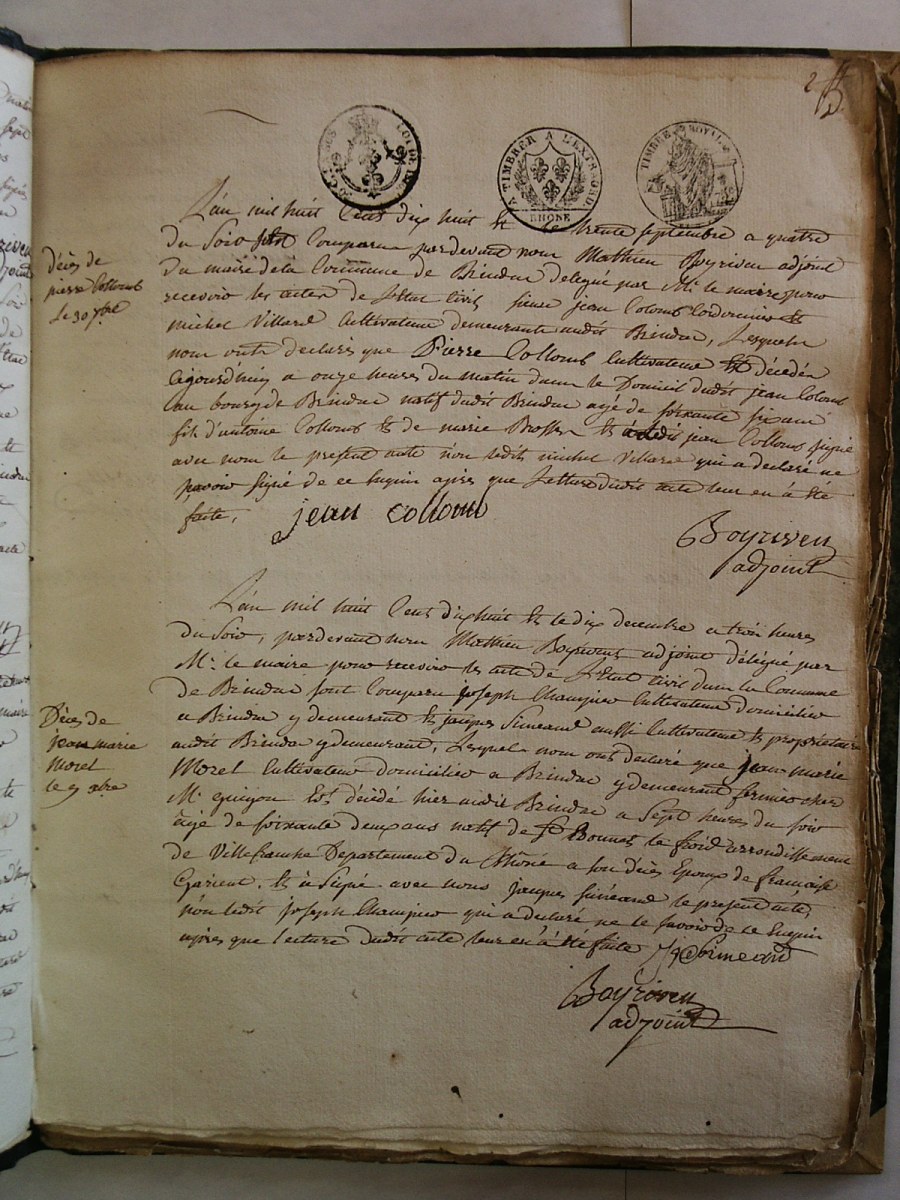 A TIMBRER A L'EXTRAORD.
RHONE
TIMBRE ROYAL
décès de
pierre Collomb
Le 30 7bre
L'an mil huit Cent dix huit & le trente Septembre a quatre
du Soir sont Comparu pardevant nous Mathieu Boyriven adjoint
du maire de la Commune de Brindas délégué par Mr. le maire pour
recevoir les actes de Letat Civil, Sieur jean Colomb Cordonnier &
michel Villard Cultivateur demeurants audit Brindas, Lesquels
nous onts declarés que Pierre Collomb Cultivateur Est décédé
aujourd'huy a onze heures du matin dans le Domicil dudit jean Colomb
au bourg de Brindas natif dudit Brindas agé de soixante six ans
fils d'antoine Collomb & de marie Brosse & à ledit jean Collomb signé
avec nous le présent acte non ledit michel Villard qui a declaré ne
savoir signé de ce Enquis après que Lecture dudit acte leur en à été
faite,
jean collomb
Boyriven
adjoint
Décès de
jean marie
Morel
le 9 xbre
L'an mil huit Cent dix huit & le dix decembre a trois heures
du Soir, pardevant nous Mathieu Boyriven adjoint délégué par
Mr. le maire pour recevoir les acte de L'Etat Civil dans la Commune
de Brindas sont Comparu joseph Champier Cultivateur domicilié
a Brindas y demeurant & jaques Simeand aussi Cultivateur & propriétaire
audit Brindas y demeurant, Lesquels nous ont déclaré que jean marie
Morel Cultivateur domicilié a Brindas y demeurant fermier chez
Mr guiyon Est décédé hier audit Brindas a Sept heures du soir
âgé de soixante deux ans natif de St Bonnet le froid arrondissement
de Villefranche Departement du Rhône a son décès Epoux de francoise
& à Signé avec nous jaques siméand le present acte,
non ledit joseph Champier qui a declaré ne le savoir de ce Enquis
après que lecture dudit acte leur en à été faite
Simeand
Boyriven
adjoint